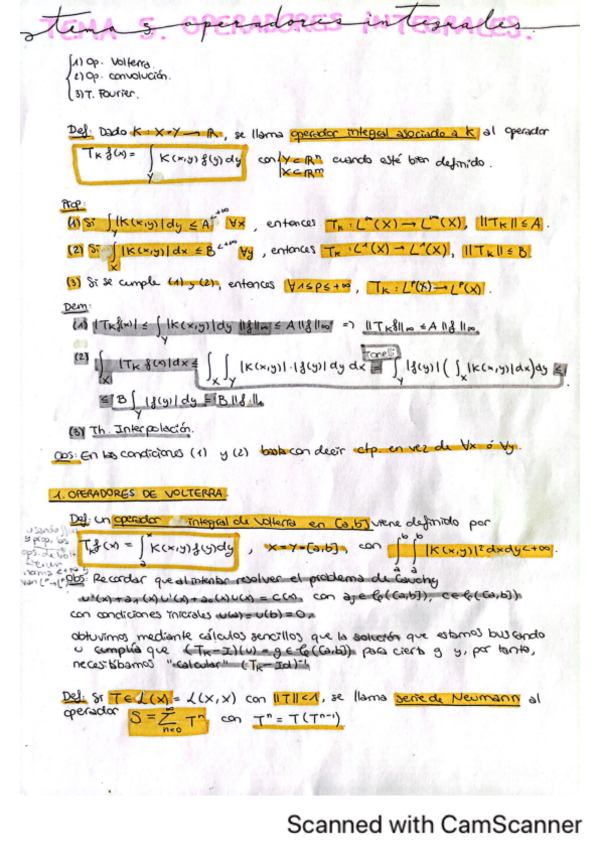 TEMA 5. OPERADORES INTEGRALES.
tema 5. operadores integrales.
1) Op. Volterra.
2) Op. convolución.
3) T. Fourier.
Def: Dado K: X×Y → R, se llama operador integral asociado a K al operador
T_K f(x) = ∫_Y K(x,y) f(y) dy con Y ⊂ R^n X ⊂ R^m cuando esté bien definido.
Prop:
(1) Si ∫_Y |K(x,y)| dy ≤ A <+∞ ∀x, entonces T_K: L^∞(X) → L^∞(X), ||T_K|| ≤ A.
(2) Si ∫_X |K(x,y)| dx ≤ B <+∞ ∀y, entonces T_K: L^1(X) → L^1(X), ||T_K|| ≤ B.
(3) Si se cumple (1) y (2), entonces ∀ 1≤p≤+∞, T_K: L^p(X) → L^p(X).
Dem:
(1) |T_K f(x)| ≤ ∫_Y |K(x,y)| dy ||f||_∞ ≤ A ||f||_∞ => ||T_K f||_∞ ≤ A ||f||_∞
Tonelli
(2) ∫_X |T_K f(x)| dx ≤ ∫_X ∫_Y |K(x,y)|·|f(y)| dy dx = ∫_Y |f(y)| (∫_X |K(x,y)| dx) dy ≤
≤ B ∫_Y |f(y)| dy = B ||f||_1
(3) Th. Interpolación.
Obs: En las condiciones (1) y (2) basta con decir ctp en vez de ∀x ó ∀y.
1. OPERADORES DE VOLTERRA.
Def: Un operador integral de Volterra en [a,b] viene definido por
T_K f(x) = ∫_a^x K(x,y) f(y) dy, X=Y=[a,b], con ∫_a^b ∫_a^b |K(x,y)|² dx dy < +∞.
Obs: Recordar que al intentar resolver el problema de Cauchy
u''(x) + a_1(x) u'(x) + a_0(x) u(x) = c(x), con a_j ∈ C([a,b]), c ∈ C([a,b])
con condiciones iniciales u(a) = u'(b) = 0,
obtuvimos mediante cálculos sencillos que la solución que estamos buscando
u cumplía que (T_K - I)(u) = g ∈ C([a,b]) para cierta g y, por tanto,
necesitábamos "calcular" (T_K - Id)^-1.
Def: Si T ∈ L(X) = L(X,X) con ||T|| < 1, se llama serie de Neumann al
operador S = Σ_{n=0}^∞ T^n con T^n = T(T^{n-1})
Scanned with CamScanner